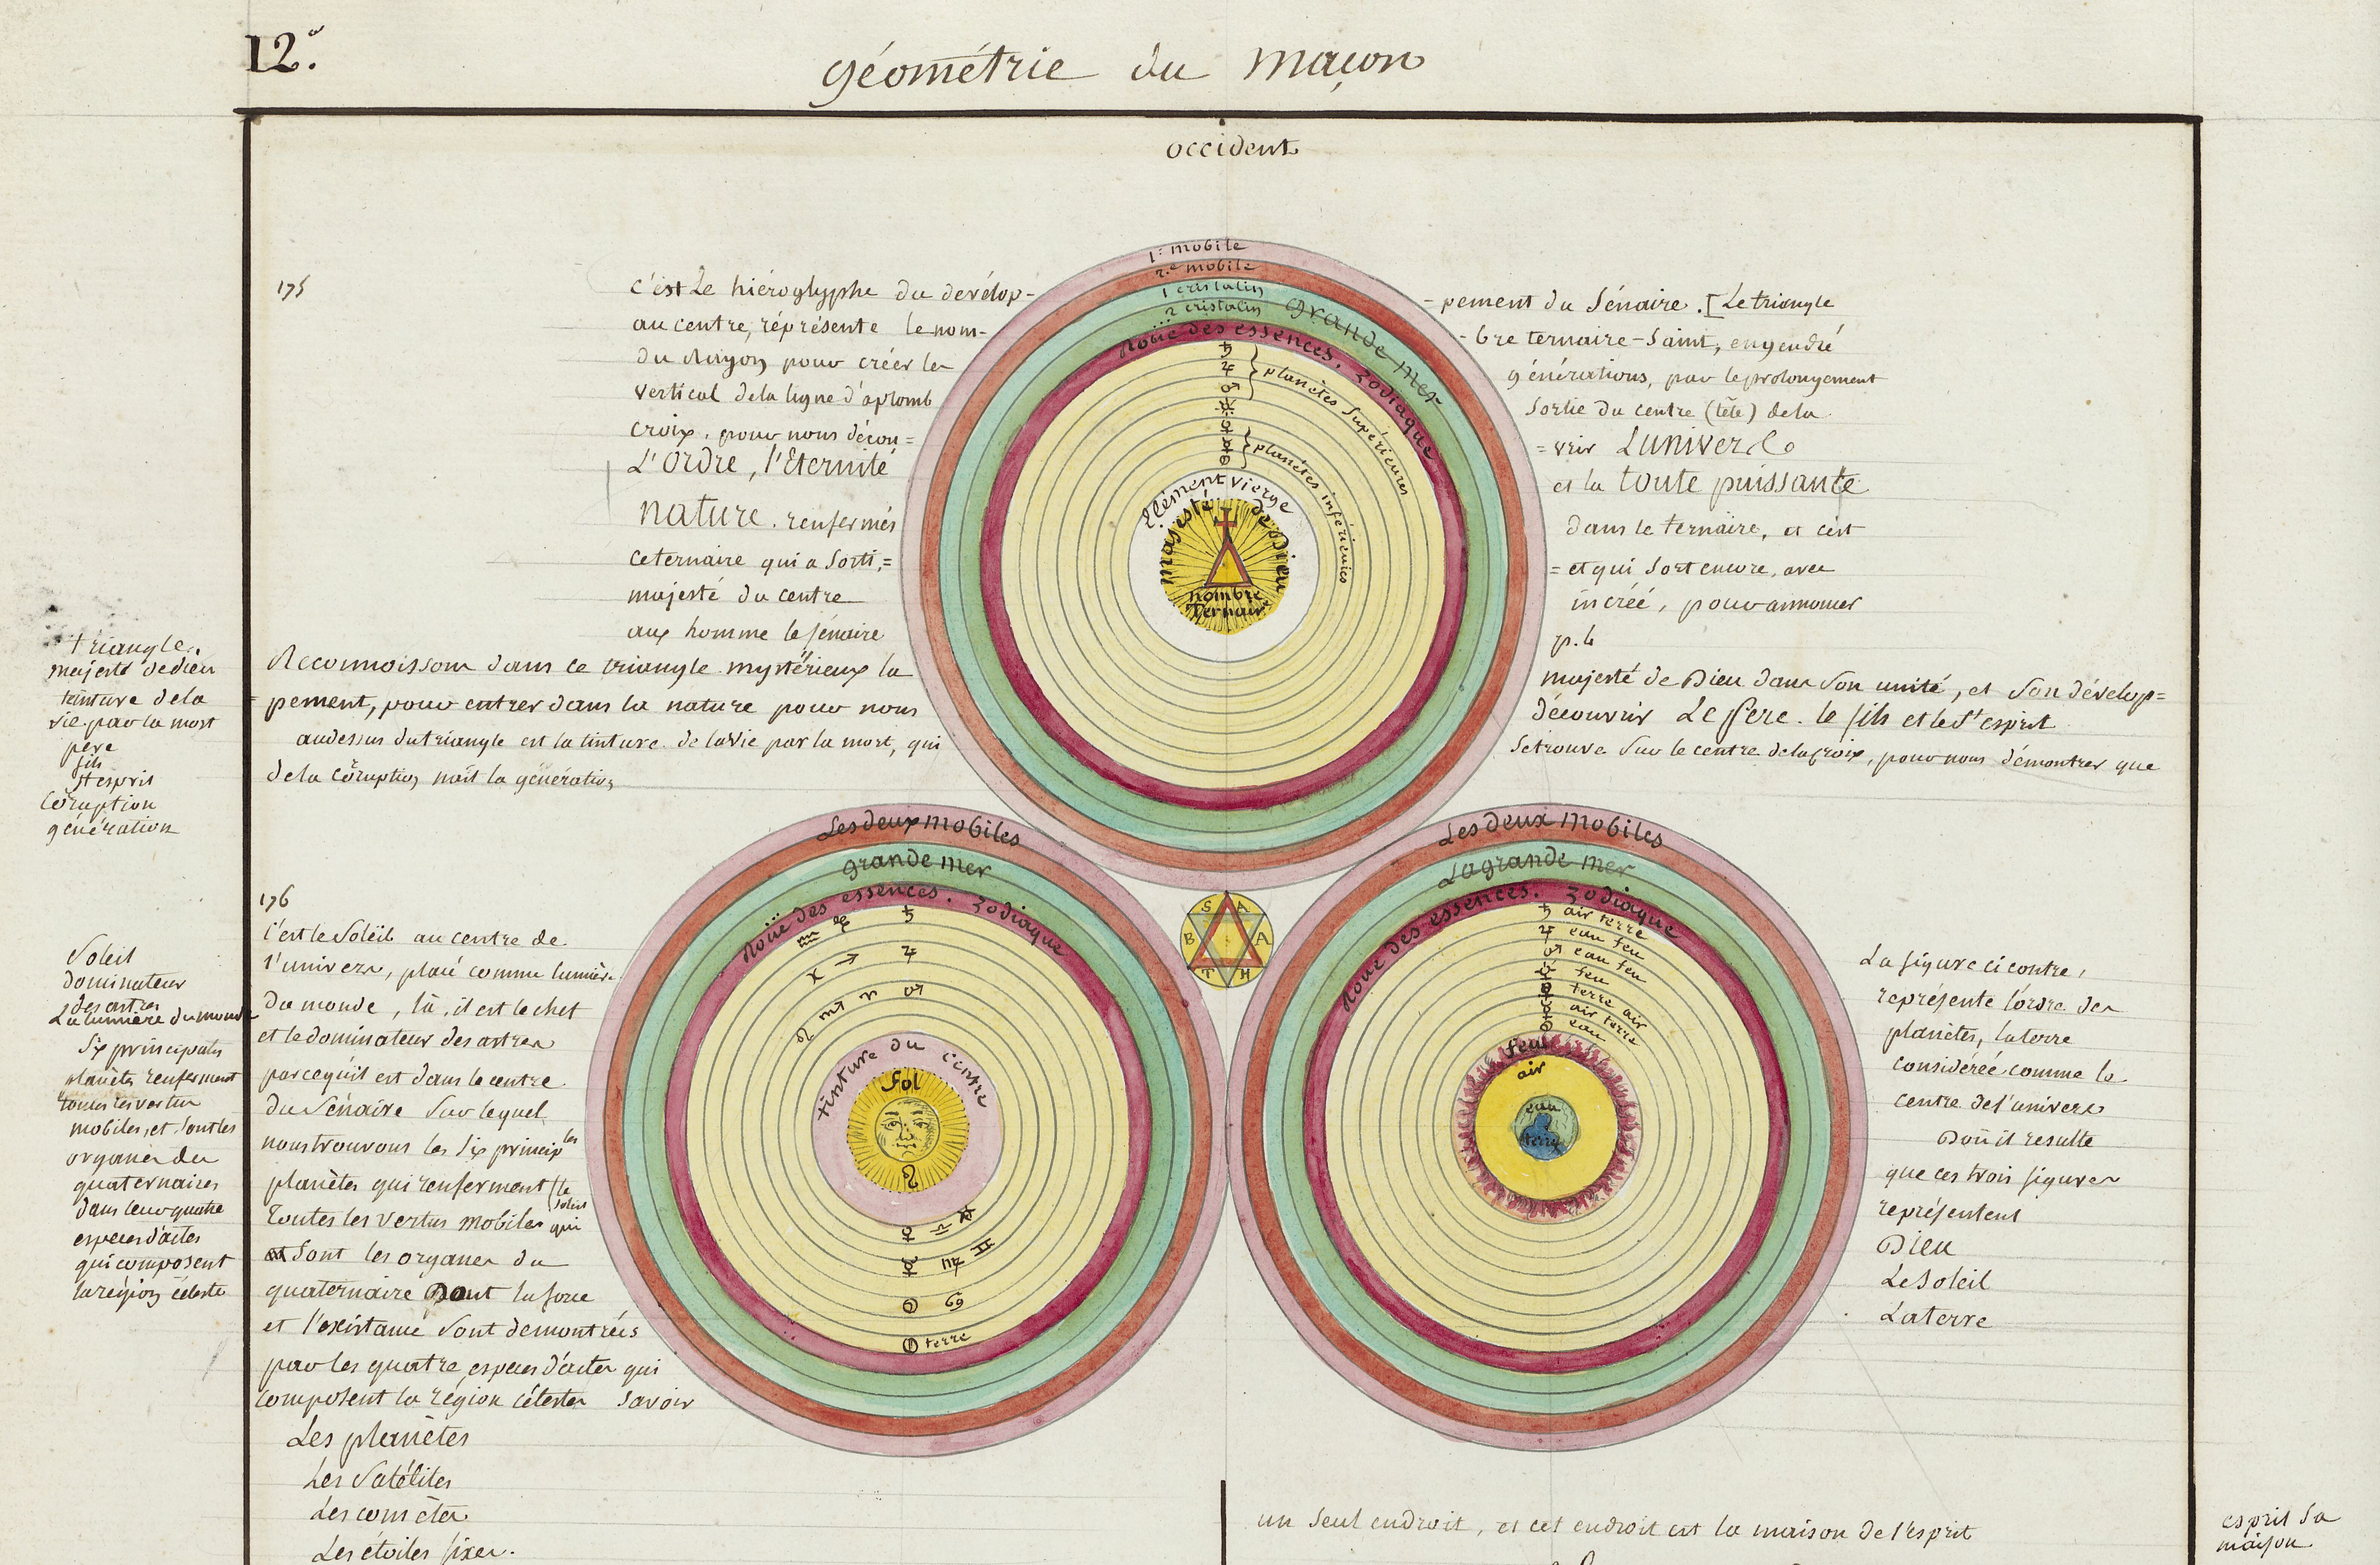 12.e
géométrie du maçon
occident
175
c'est Le hiéroglyphe du dévélop-
-pement du Sénaire. [Le triangle
au centre, réprésente le nom-
-bre ternaire-Saint, engendré
du Rayon pour créer les
générations, par le prolongement
vertical dela ligne d'aplomb
sortie du centre (tête) dela
croix. pour nous décou=
=vrir L'univers
L'ordre, l'Eternité
et la toute puissante
nature. renfermés
dans le ternaire, et c'est
ceternaire qui a sorti,=
=et qui sort encore, avec
majesté du centre
incréé, pour annoncer
aux homme le sénaire
p. le
Reconnoissons dans ce triangle mystérieux la
majesté de Dieu dans son unité, et son dévelop=
=pement, pour entrer dans la nature pour nous
découvrir Le pere. le fils et le St esprit
audessus du triangle est la tinture de la vie par la mort, qui
setrouve sur le centre dela croix, pour nous démontrer que
dela coruption nait la génération
triangle.
majesté de dieu
teinture dela
vie par la mort
père
fils
St esprit
coruption
génération
1.r mobile
2.e mobile
1 cristalin
2 cristalin
grande mer
Roüe des essences. zodiaque
♄
♃
♂
planètes supérieures
☿
♀
planètes inférieures
élément vierge
majesté de dieu
nombre
Ternaire
Les deux mobiles
grande mer
Roüe des essences. zodiaque
♒ ♑ ♄
♓ ♐ ♃
♌ ♏ ♈ ♂
tinture du centre
Sol
♌
♀ ♎ ♉
☿ ♍ ♊
♋
terre
S A
B A
T H
Les deux mobiles
La grande mer
Roue des essences. zodiaque
♄ air terre
♃ eau feu
♂ eau feu
feu
terre air
air terre
eau
feu
air
eau
terre
176
c'est le soleil au centre de
l'univers, placé comme lumière
du monde, là, il est le chef
et le dominateur des astres
parcequ'il est dans le centre
du Sénaire sur lequel
nous trouvons les six princip les
planètes qui renferment
toutes les vertus mobiles
(le soleil qui
sont les organes du
quaternaire Dont la force
et l'existance sont demontrées
par les quatre especes d'actes qui
composent la région célestes savoir
Les planètes
Les Satélites
Les comètes
Les étoiles fixes.
Soleil
dominateur
des astres
La lumière du monde
Six principales
planètes renferment
toutes les vertus
mobiles, et sont les
organes du
quaternaires
dans leur quatre
especes d'actes
qui composent
la région céleste
La figure ci contre,
représente l'ordre des
planètes, la terre
considérée comme le
centre de l'univers
Doù il resulte
que ces trois figures
représentent
Dieu
Le Soleil
La terre
un seul endroit, et cet endroit est la maison de l'esprit
esprit sa
maison.